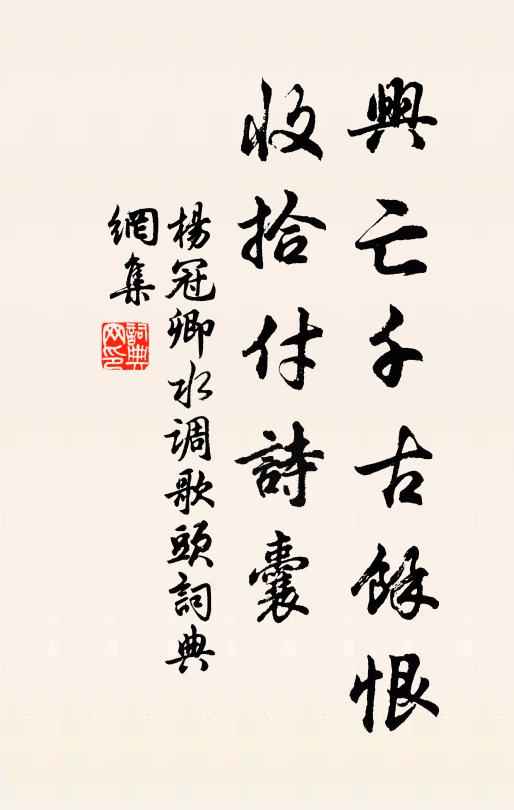 興亡千古餘恨
收拾付詩囊
楊冠卿水调歌頭詞典
網集
詞典网印